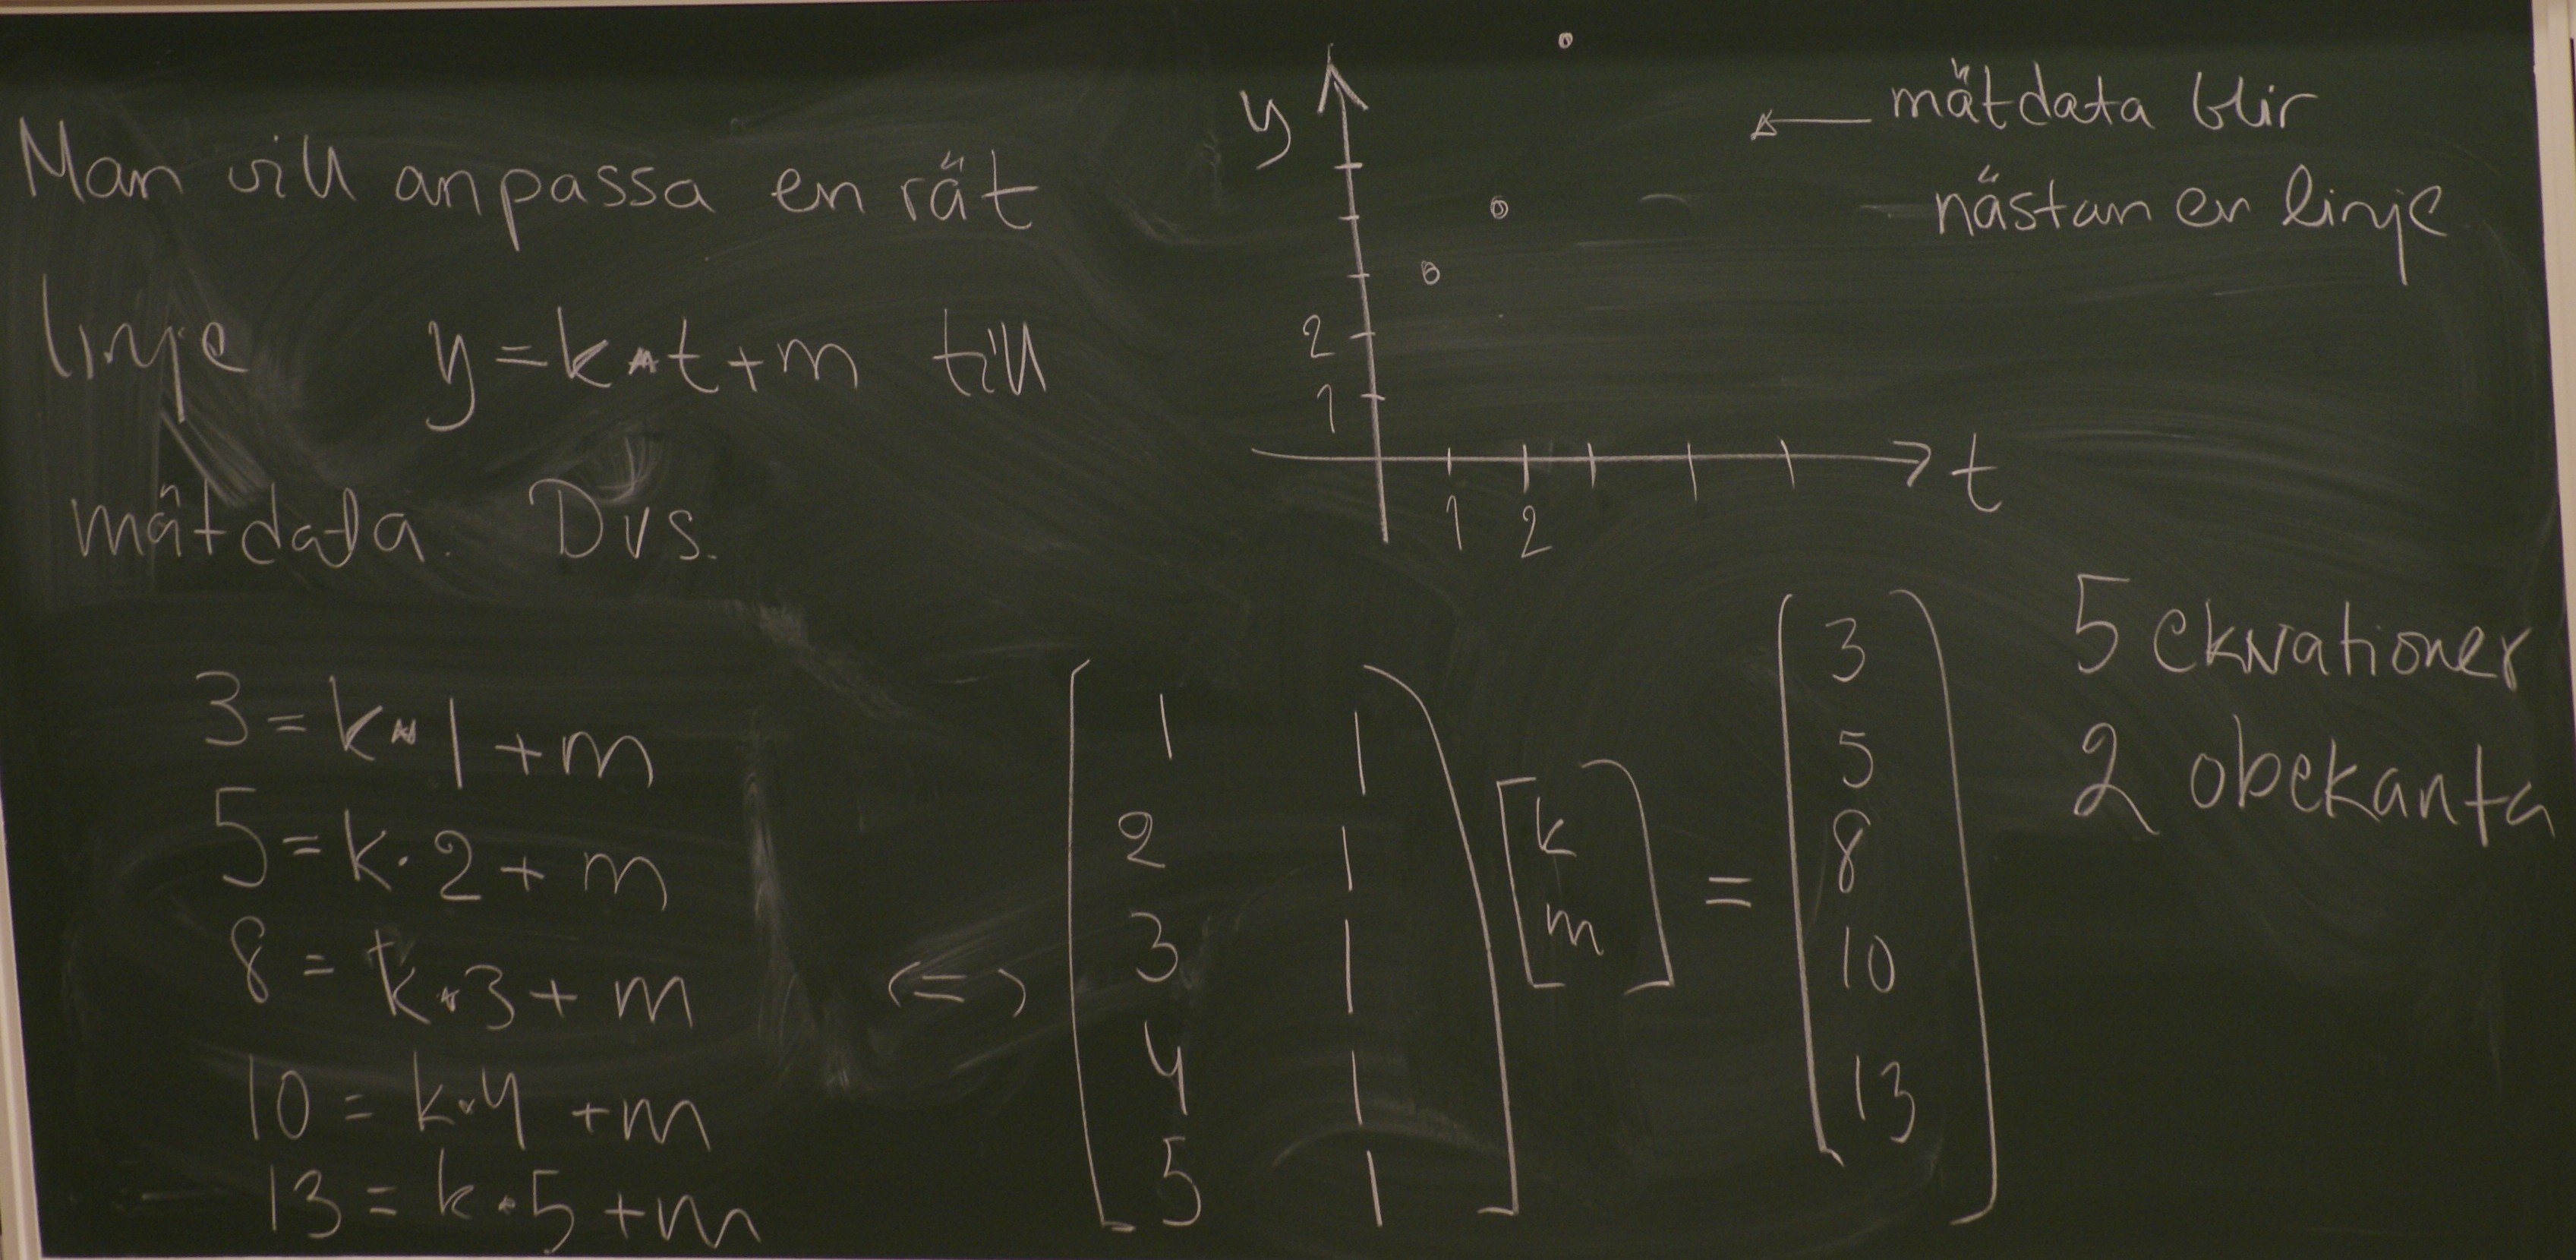 Man vill anpassa en rät
linje y = k·t + m till
mätdata. Dvs.
y
2
1
1 2
t
← mätdata blir
nästan en linje
3 = k·1 + m
5 = k·2 + m
8 = k·3 + m
10 = k·4 + m
13 = k·5 + m
<=>
1 1
2 1
3 1
4 1
5 1
k
m
=
3
5
8
10
13
5 ekvationer
2 obekanta